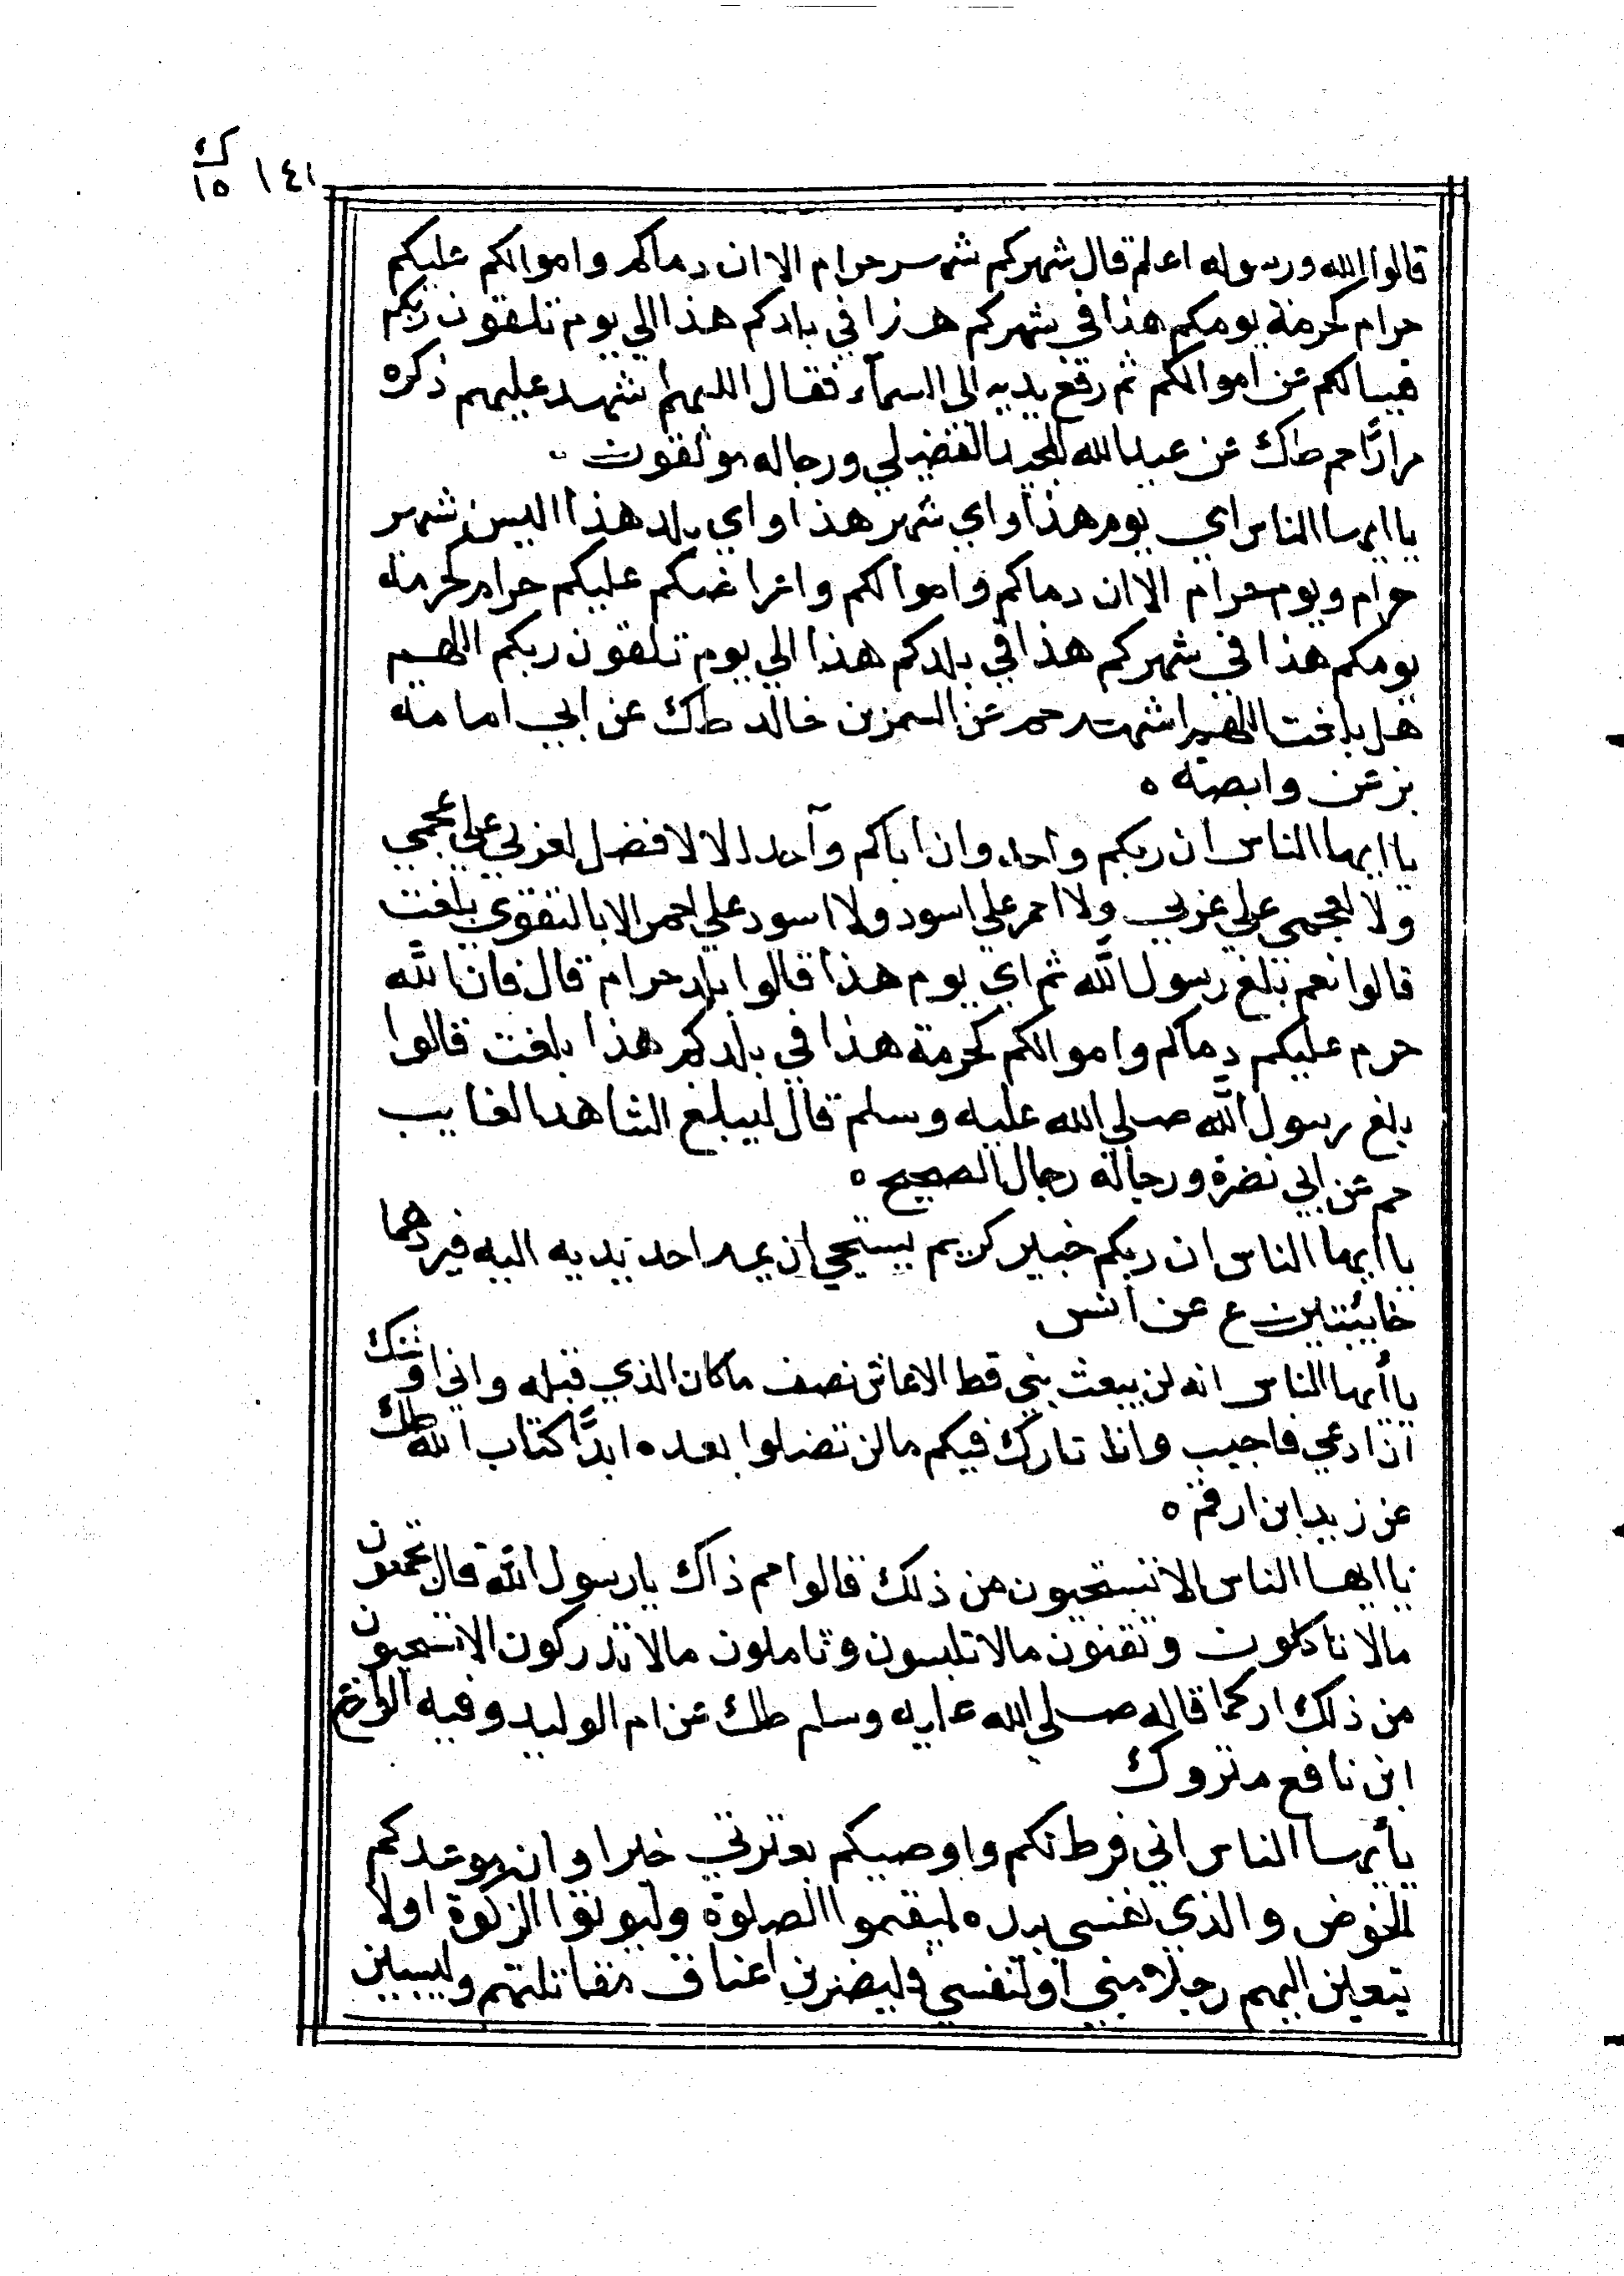 ١٤١ ك
١٥
قالوا الله ورسوله اعلم قال شهركم شهر حرام الا ان دماكم واموالكم عليكم
حرام كحرمة يومكم هذا في شهركم هذا في بلدكم هذا الي يوم تلقون ربكم
فيسالكم عن اموالكم ثم رفع يديه الى السماء فقال اللهم اشهد عليهم ذكره
مرارًا حم طك عن عبد المجيد العقيلي ورجاله موثقون
يا ايها الناس اي يوم هذا واي شهر هذا واي بلد هذا اليس شهر
حرام ويوم حرام الا ان دماكم واموالكم واعراضكم عليكم حرام كحرمة
يومكم هذا في شهركم هذا في بلدكم هذا الي يوم تلقون ربكم اللهم
هل بلغت اللهم اشهد حم عن خالد طك عن ابي امامه
بز عن وابصه ه
يا ايها الناس ان ربكم واحد وان اباكم واحد الا لا فضل لعربي علي عجمي
ولا لعجمي علي عربي ولا احمر علي اسود ولا اسود علي احمر الا بالتقوي بلغت
قالوا نعم بلغ رسول الله ثم اي يوم هذا قالوا بلد حرام قال فان الله
حرم عليكم دماكم واموالكم كحرمة هذا في بلدكم هذا بلغت قالوا
بلغ رسول الله صلي الله عليه وسلم قال ليبلغ الشاهد الغايب
حم عن ابي نضرة ورجاله رجال الصحيح ه
يا ايها الناس ان ربكم كريم يستحي ان يمد احد يديه اليه فيردهما
خائبتين ع عن انس
يا أيها الناس انه لن يبعث نبي قط الا عاش نصف ما كان الذي قبله واني اوشك
ان ادعي فاجيب وانا تارك فيكم ما لن تضلوا بعده ابدًا كتاب الله طك
عن زيد ابن ارقم ه
يا ايها الناس الا تستحيون من ذلك قالوا مم ذاك يا رسول الله قال تجمعون
مالا تاكلون مالا تلبسون وتاملون مالا تدركون الا تستحيون
من ذلك قاله صلي الله عليه وسلم طك عن ام الوليد وفيه الوازع
ابن نافع متروك
يا أيها الناس اني فرط لكم واوصيكم بعترتي خيرا وان موعدكم
الحوض والذي نفسي بيده ليقيموا الصلوة وليوتوا الزكوة اولا
بعثن اليهم رجلا مني او لنفسي فليضربن اعناق مقاتلتهم وليسبين